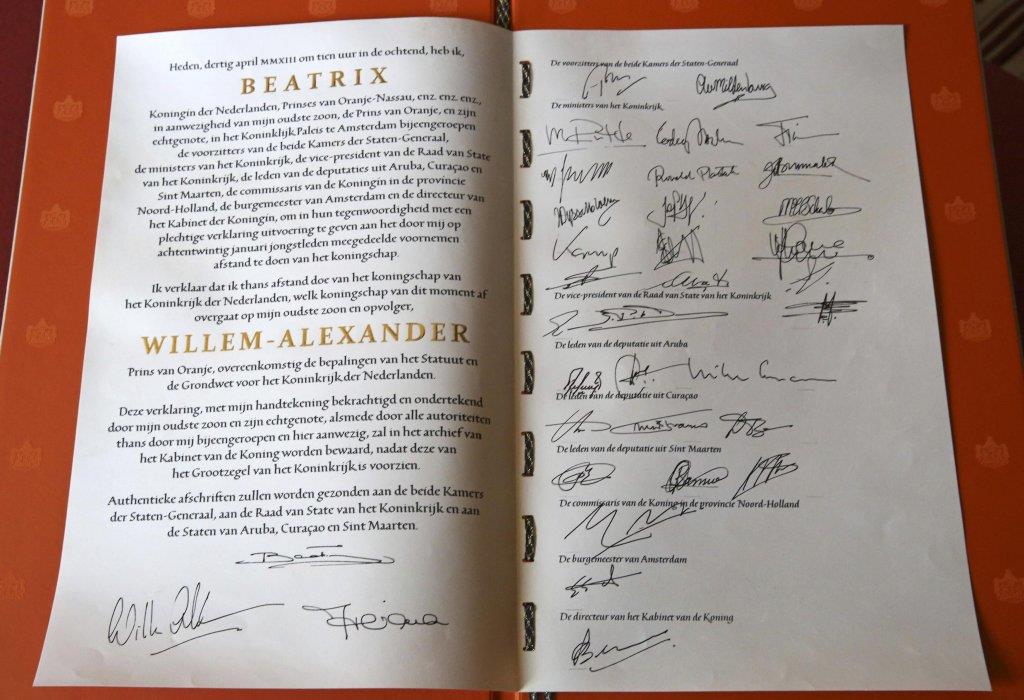 Heden, dertig april MMXIII om tien uur in de ochtend, heb ik,
BEATRIX
Koningin der Nederlanden, Prinses van Oranje-Nassau, enz. enz. enz.,
in aanwezigheid van mijn oudste zoon, de Prins van Oranje, en zijn
echtgenote, in het Koninklijk Paleis te Amsterdam bijeengeroepen
de voorzitters van de beide Kamers der Staten-Generaal,
de ministers van het Koninkrijk, de vice-president van de Raad van State
van het Koninkrijk, de leden van de deputaties uit Aruba, Curaçao en
Sint Maarten, de commissaris van de Koningin in de provincie
Noord-Holland, de burgemeester van Amsterdam en de directeur van
het Kabinet der Koningin, om in hun tegenwoordigheid met een
plechtige verklaring uitvoering te geven aan het door mij op
achtentwintig januari jongstleden meegedeelde voornemen
afstand te doen van het koningschap.
Ik verklaar dat ik thans afstand doe van het koningschap van
het Koninkrijk der Nederlanden, welk koningschap van dit moment af
overgaat op mijn oudste zoon en opvolger,
WILLEM-ALEXANDER
Prins van Oranje, overeenkomstig de bepalingen van het Statuut en
de Grondwet voor het Koninkrijk der Nederlanden.
Deze verklaring, met mijn handtekening bekrachtigd en ondertekend
door mijn oudste zoon en zijn echtgenote, alsmede door alle autoriteiten
thans door mij bijeengeroepen en hier aanwezig, zal in het archief van
het Kabinet van de Koning worden bewaard, nadat deze van
het Grootzegel van het Koninkrijk is voorzien.
Authentieke afschriften zullen worden gezonden aan de beide Kamers
der Staten-Generaal, aan de Raad van State van het Koninkrijk en aan
de Staten van Aruba, Curaçao en Sint Maarten.
De voorzitters van de beide Kamers der Staten-Generaal
De ministers van het Koninkrijk
Ronald Plasterk
Kamp
De vice-president van de Raad van State van het Koninkrijk
De leden van de deputatie uit Aruba
De leden van de deputatie uit Curaçao
De leden van de deputatie uit Sint Maarten
De commissaris van de Koning in de provincie Noord-Holland
De burgemeester van Amsterdam
De directeur van het Kabinet van de Koning